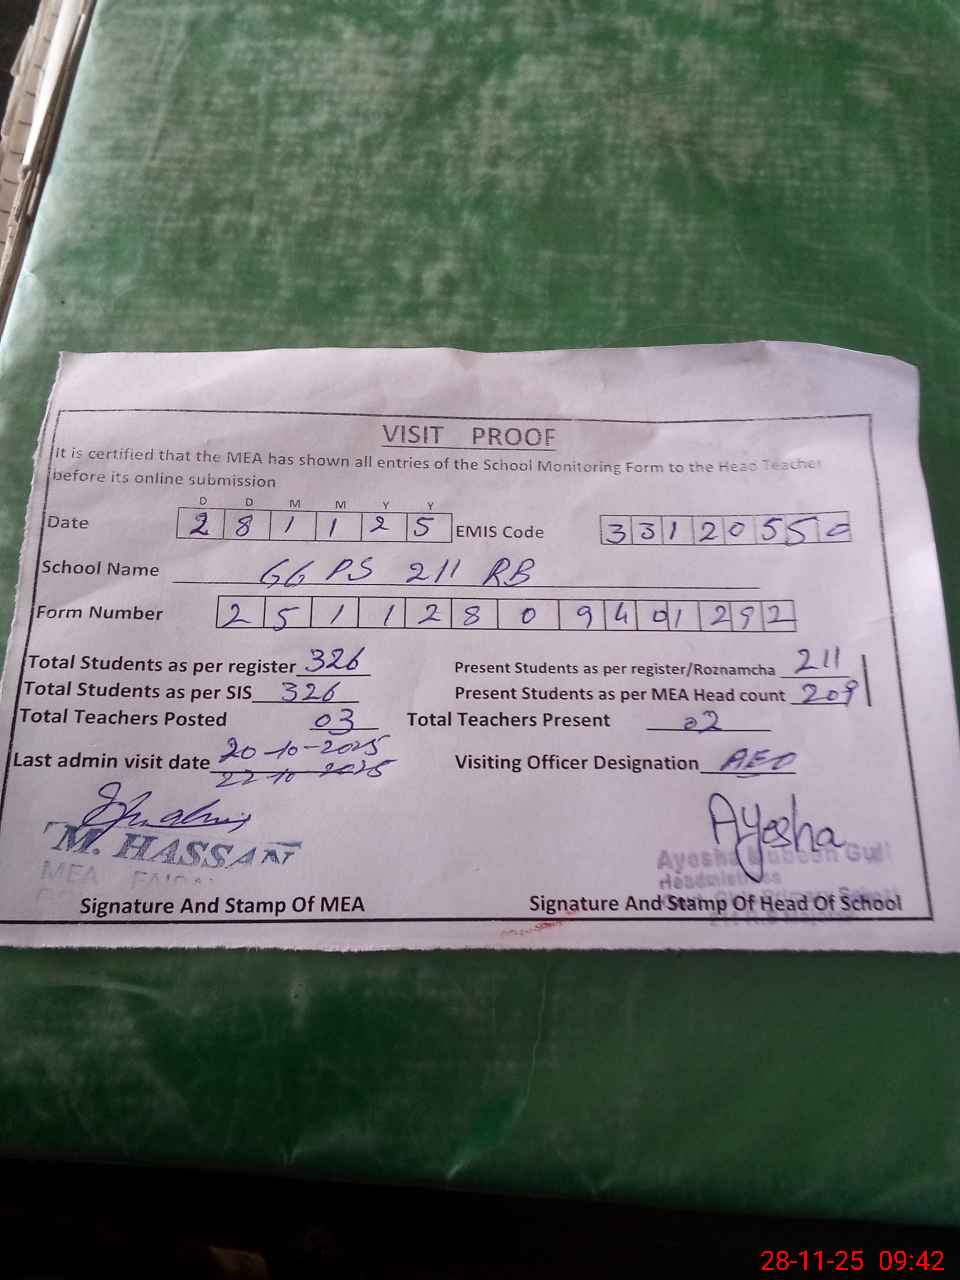 VISIT PROOF
It is certified that the MEA has shown all entries of the School Monitoring Form to the Head Teacher
before its online submission
D D M M Y Y
Date 2 8 1 1 2 5 EMIS Code 3 3 1 2 0 5 5 0
School Name GGPS 211 RB
Form Number 2 5 1 1 2 8 0 9 4 01 2 9 2
Total Students as per register 326 Present Students as per register/Roznamcha 211
Total Students as per SIS 326 Present Students as per MEA Head count 209
Total Teachers Posted 03 Total Teachers Present 02
20-10-2025
Last admin visit date Visiting Officer Designation AEO
22-10-2025
Ayesha
M. HASSAN
Ayesha Gull
MEA
Signature And Stamp Of MEA Signature And Stamp Of Head Of School
28-11-25 09:42